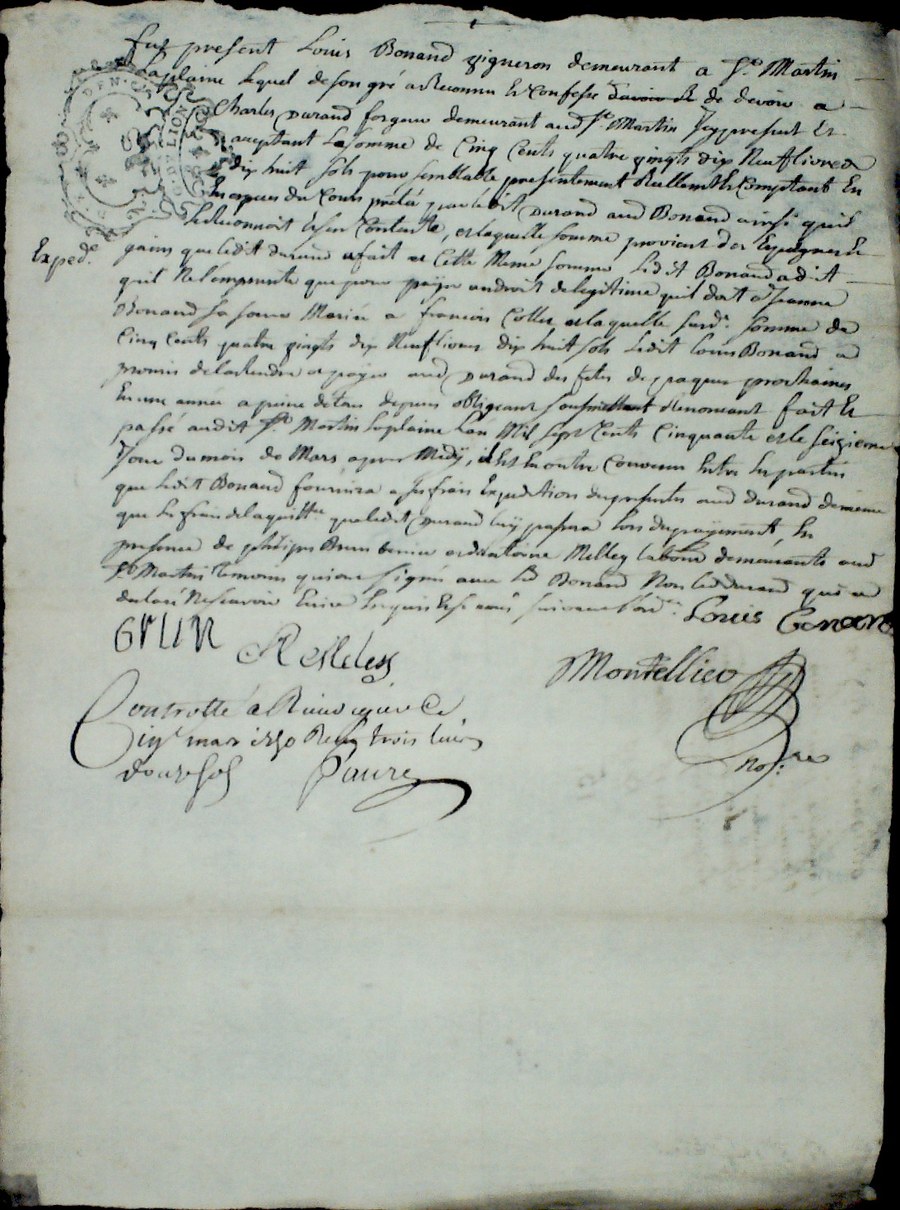 fut present Louis Bonand vigneron demeurant a St. Martin
Laplaine lequel de son gré a Reconnu Et Confessé davoir Et de devoir a
Charles Durand forgeur demeurant aud. St. Martin Icy present Et
acceptant La somme de Cinq Cents quatre vingts dix Neuf livres
dix huit sols pour semblable presentement Reellement Comptant En
Especes du Cours pretée par ledit Durand aud Bonand ainsi quil
le Reconnoit Et sen Contente, et laquelle somme provient des Epargnes Et
gains que ledit durand a fait et Cette Meme somme Ledit Bonand a dit
Exped.
quil Ne lemprunte que pour payer un droit de legitime quil doit a Jeanne
Bonand sa soeur Mariée a francois Collet, et laquelle susd. somme de
Cinq Cents quatre vingts dix Neuf livres dix huit sols Ledit Louis Bonand a
promis de la Rendre et payer aud Durand des fetes de paques prochaines
En une année a peine de tous depens obligeant soumettant Renonceant fait Et
passé audit St Martin Laplaine Lan Mil sept Cents Cinquante et le seizieme
Jour du mois de Mars apres Midy, il Est En outre Convenu Entre les parties
que Ledit Bonand fournira a ses frais Expedition des presentes aud durand de meme
que les frais de la quittce que ledit Durand luy passera lors du payement, En
presence de philipe Brun et Melley labour demeurants aud
St Martin temoins qui ont signés avec led Bonand Non led durand qui a
declaré Ne scavoir Ecrire Enquis Et somé suivant lord.ce Louis Bonand
GRUN
Melley
Montellier
Controllé a Rivedegier Ce
vingt mars 1750 Recu trois livres
douze sols Faure
no.re